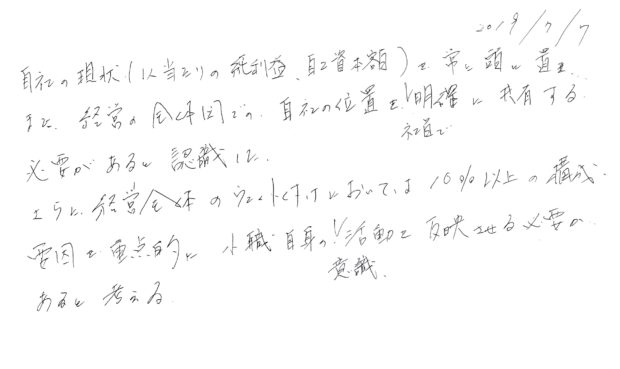 2019/7/7
自社の現状(1人当たりの純利益、自己資本額)を常に頭に置き、
また、経営の全体図での、自社の位置を、明確に共有する
社員で
必要があると認識した。
さらに、経営全体のウェイト付けにおいては10%以上の構成
要因を重点的に、小職自身の活動を反映させる必要が
意識、
あると考える。